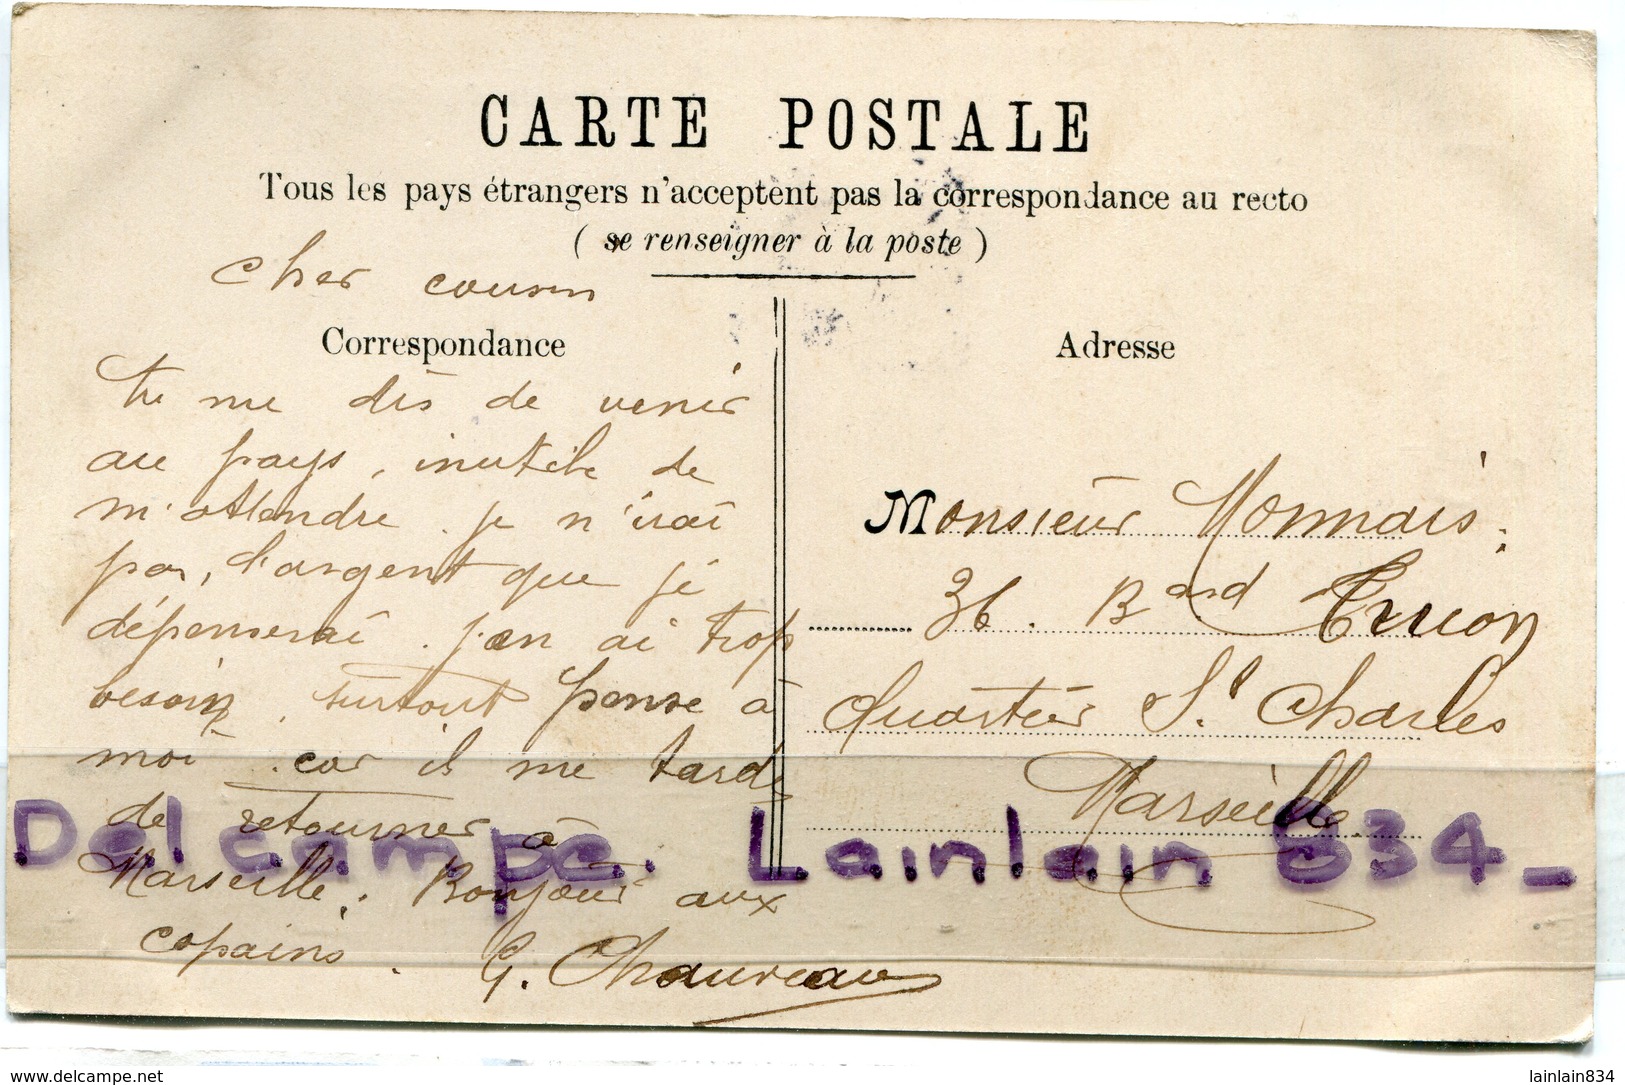 CARTE POSTALE
Tous les pays étrangers n'acceptent pas la correspondance au recto
( se renseigner à la poste )
Cher cousin
Correspondance
tu me dis de venir
au pays, inutile de
m'attendre. je n'irai
pas, l'argent que je
dépenserai. j'en ai trop
besoin, surtout pense à
moi. car il me tarde
de retourner à
Marseille. Bonjour aux
copains. G. Chauveau
Adresse
Monsieur Monnais.
36. Bard Truion
Quartier St Charles
Marseille
Delcampe. Lainlain 834_
www.delcampe.net
lainlain834